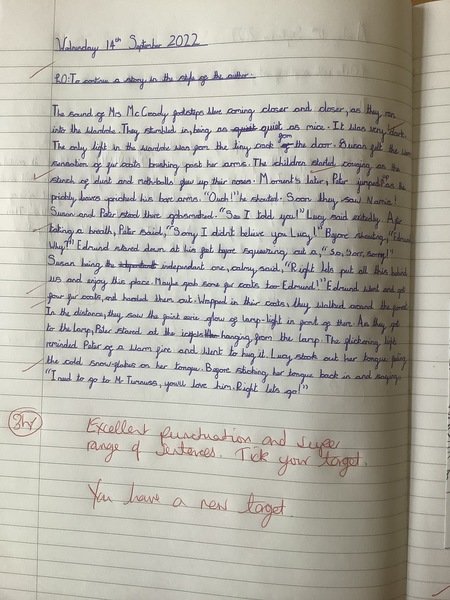 Wednesday 14th September 2022
L.O: To continue a story in the style of the author.
The sound of Mrs McCready footsteps were coming closer and closer, as they ran
into the wardrobe. They stumbled in, being as quiet as mice. It was very dark.
The only light in the wardrobe was from the tiny crack of the door. Susan felt the
sensation of fur coats brushing past her arms. The children started coughing as the
stench of dust and moth-balls flew up their noses. Moment's later, Peter jumped as the
prickly leaves pricked his bare arms. "Ouch!" he shouted. Soon they saw Narnia!
Susan and Peter stood there gobsmacked. "See I told you!" Lucy said excitedly. After
taking a breath, Peter said, "Sorry I didnt believe you Lucy!" Before shouting, "Edmund
Why?" Edmund stared down at his feet before squeaking out a, "So, Sor, sorry!"
Susan being the independent one, calmy said, "Right lets put all this behind
us and enjoy this place. Maybe grab some fur coats too Edmund!" Edmund went and got
four fur coats, and handed them out. Wrapped in their coats, they walked around the forest.
In the distance, they saw the faint glow of lamp-light in front of them. As they got
to the lamp, Peter stared at the hanging from the lamp. The flickering light
reminded Peter of a warm fire and went to hug it. Lucy stook out her tongue
the cold snow-flakes on her tongue. Before sticking her tongue back in and saying,
"I need to go to Mr Tumnuss, you'll love him. Right lets go!"
Excellent punctuation and super
range of sentences. Tick your target.
You have a new target